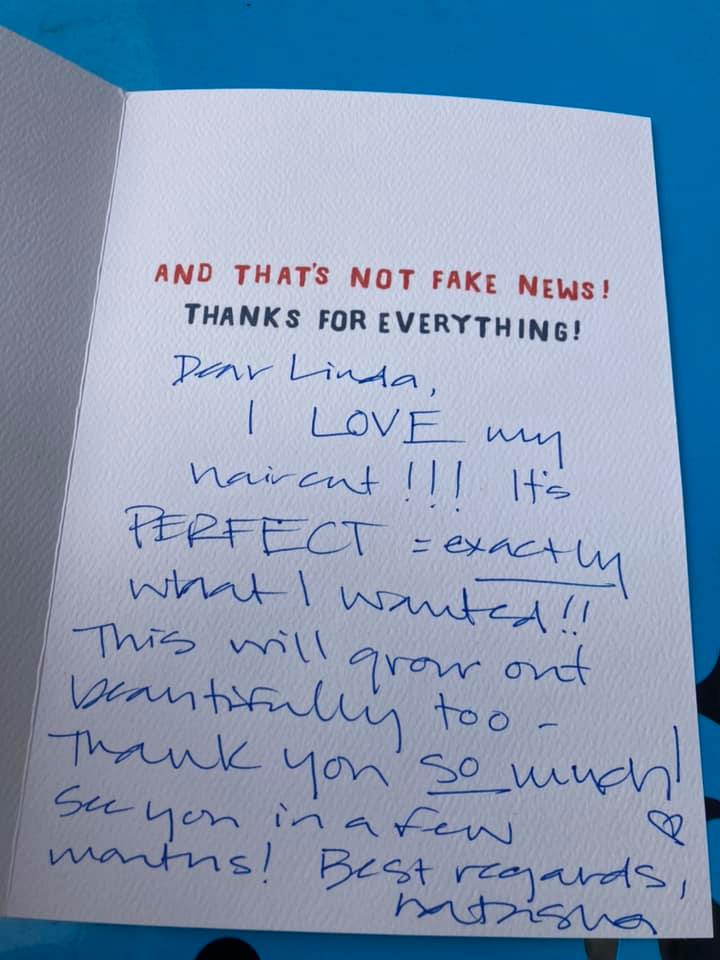 AND THAT'S NOT FAKE NEWS!
THANKS FOR EVERYTHING!
Dear Linda,
I LOVE my
haircut!!! It's
PERFECT = exactly
what I wanted!!
This will grow out
beautifully too -
Thank you so much!
See you in a few
months! Best regards,
Natasha